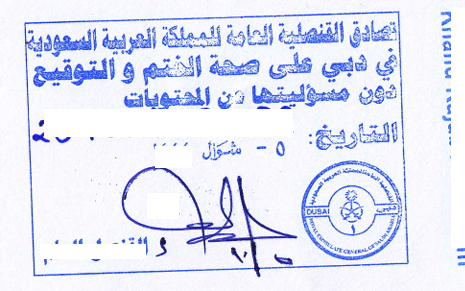 تصادق القنصلية العامة للمملكة العربية السعودية
في دبي على صحة الختم و التوقيع
دون مسؤليتها عن المحتويات
التاريخ:
٥ - شوال
القنصل العام
DUBAI
ROYAL CONSULATE GENERAL OF SAUDI ARABIA
١
Khalid